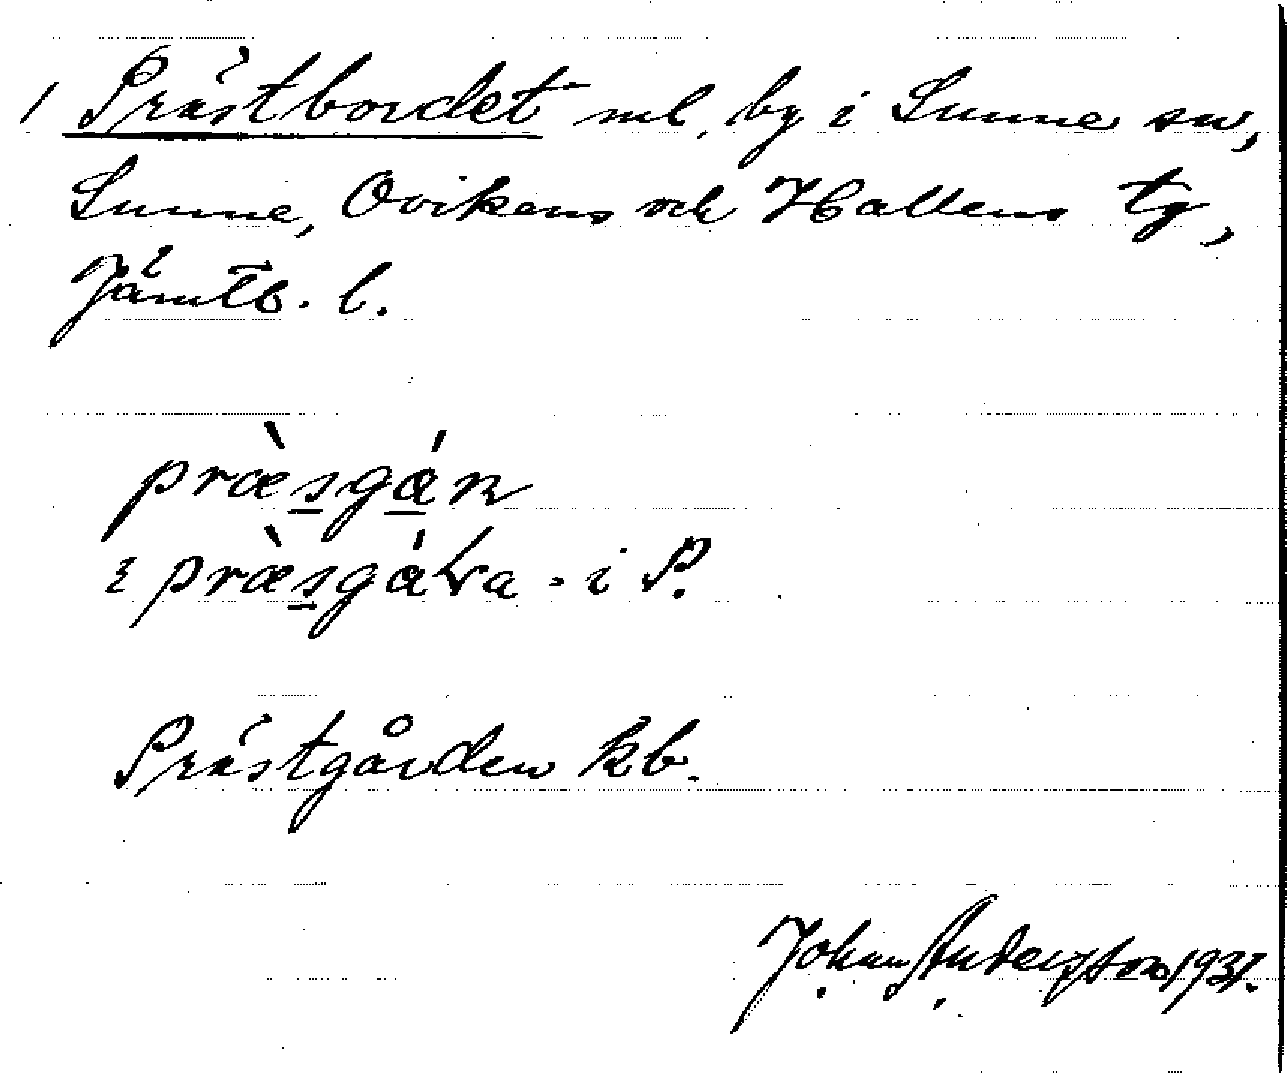 1 Prästbordet ml. by i Sunne sn,
Sunne, Ovikens och Hallens tg,
Jämtl. l.
præ̀sgáɳ
i præ̀sgáɽa - i P.
Prästgården kb.
Johan Anderson 1931.